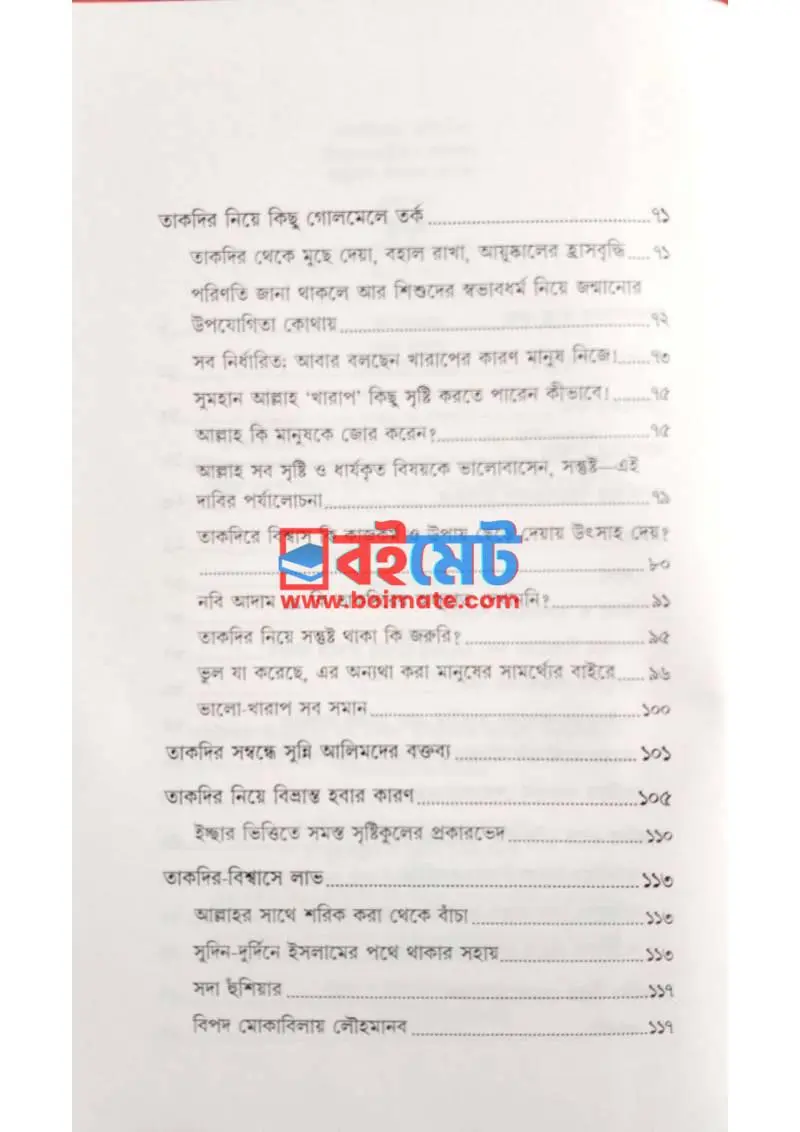 তাকদির নিয়ে কিছু গোলমেলে তর্ক ........ ৭১
তাকদির থেকে মুছে দেয়া, বহাল রাখা, আয়ুষ্কালের হ্রাসবৃদ্ধি ..... ৭১
পরিণতি জানা থাকলে আর শিশুদের স্বভাবধর্ম নিয়ে জন্মানোর
উপযোগিতা কোথায় ........ ৭২
সব নির্ধারিত; আবার বলছেন খারাপের কারণ মানুষ নিজে! ........ ৭৩
সুমহান আল্লাহ ‘খারাপ’ কিছু সৃষ্টি করতে পারেন কীভাবে! ........ ৭৫
আল্লাহ কি মানুষকে জোর করেন? ........ ৭৫
আল্লাহ সব সৃষ্টি ও ধার্যকৃত বিষয়কে ভালোবাসেন, সন্তুষ্ট—এই
দাবির পর্যালোচনা ........ ৭৯
তাকদিরে বিশ্বাস কি কাজকর্ম ও উপায় ছেড়ে দেয়ায় উৎসাহ দেয়?
........ ৮০
বইমেট
www.boimate.com
নবি আদম ........ ৯১
তাকদির নিয়ে সন্তুষ্ট থাকা কি জরুরি? ........ ৯৫
ভুল যা করেছে, এর অন্যথা করা মানুষের সামর্থ্যের বাইরে ...... ৯৬
ভালো-খারাপ সব সমান ........ ১০০
তাকদির সম্বন্ধে সুন্নি আলিমদের বক্তব্য ........ ১০১
তাকদির নিয়ে বিভ্রান্ত হবার কারণ ........ ১০৫
ইচ্ছার ভিত্তিতে সমস্ত সৃষ্টিকুলের প্রকারভেদ ........ ১১০
তাকদির-বিশ্বাসে লাভ ........ ১১৩
আল্লাহর সাথে শরিক করা থেকে বাঁচা ........ ১১৩
সুদিন-দুর্দিনে ইসলামের পথে থাকার সহায় ........ ১১৩
সদা হুঁশিয়ার ........ ১১৭
বিপদ মোকাবিলায় লৌহমানব ........ ১১৭